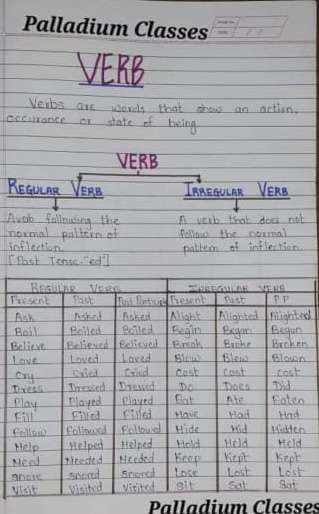 Palladium Classes
VERB
Verbs are words that show an action,
occurance or state of being
VERB
REGULAR VERB IRREGULAR VERB
A verb following the
normal pattern of
inflection.
[Past Tense-"ed"]
A verb that does not
follow the normal
pattern of inflection.
REGULAR VERB IRREGULAR VERB
Present Past Past Participle Present Past P.P
Ask Asked Asked Alight Alighted Alighted
Boil Boiled Boiled Begin Began Begun
Believe Believed Believed Break Broke Broken
Love Loved Loved Blow Blew Blown
Cry Cried Cried Cost Cost Cost
Dress Dressed Dressed Do Does Did
Play Played Played Eat Ate Eaten
Fill Filled Filled Have Had Had
Follow Followed Followed Hide Hid Hidden
Help Helped Helped Hold Held Held
Need Needed Needed Keep Kept Kept
Snore Snored Snored Lose Lost Lost
Visit Visited Visited Sit Sat Sat
Palladium Classes